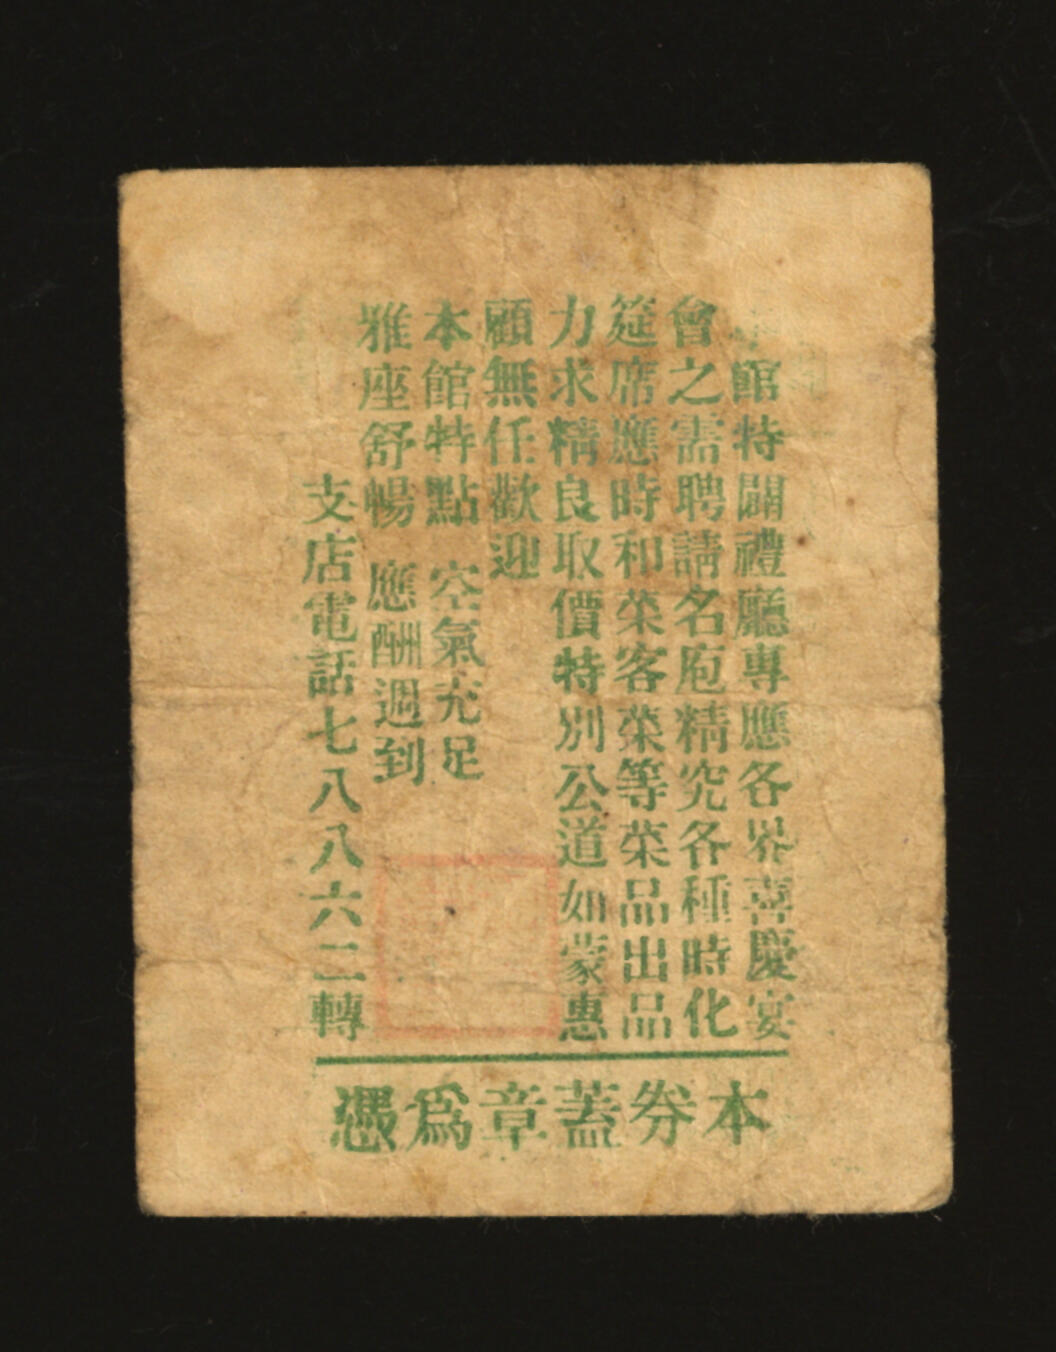 館特闢禮廳專應各界喜慶宴
會之需聘請名庖精究各種時化
筵席應時和菜客菜等菜品出品
力求精良取價特別公道如蒙惠
顧無任歡迎
本館特點 空氣充足
雅座舒暢 應酬週到
支店電話七八八六二轉
本券蓋章為憑